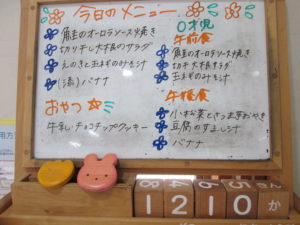 今日のメニュー
鮭のオーロラソース焼き
切り干し大根のサラダ
えのきと玉ねぎのみそ汁
バナナ
おやつ
牛乳・チョコチップクッキー
0才児
午前食
鮭のオーロラソース焼き
切干大根のサラダ
玉ねぎのみそ汁
午後食
小松菜とさつま芋おやき
豆腐のすまし汁
バナナ
12 10 か
用方